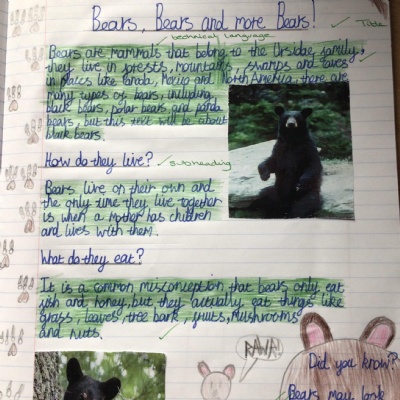 Bears, Bears and more Bears!
Title
technical language
Bears are mammals that belong to the Ursidae family,
they live in forests, mountains, swamps and caves
in places like Canada, Mexico and North America, there are
many types of bears, including
black bears, polar bears and panda
bears, but this text will be about
black bears.
How do they live?
subheading
Bears live on their own and
the only time they live together
is when a mother has children
and lives with them.
What do they eat?
It is a common misconception that bears only eat
fish and honey, but they actually eat things like
grass, leaves, tree bark, fruits, mushrooms
and nuts.
RAWR!
Did you know?
Bears may look